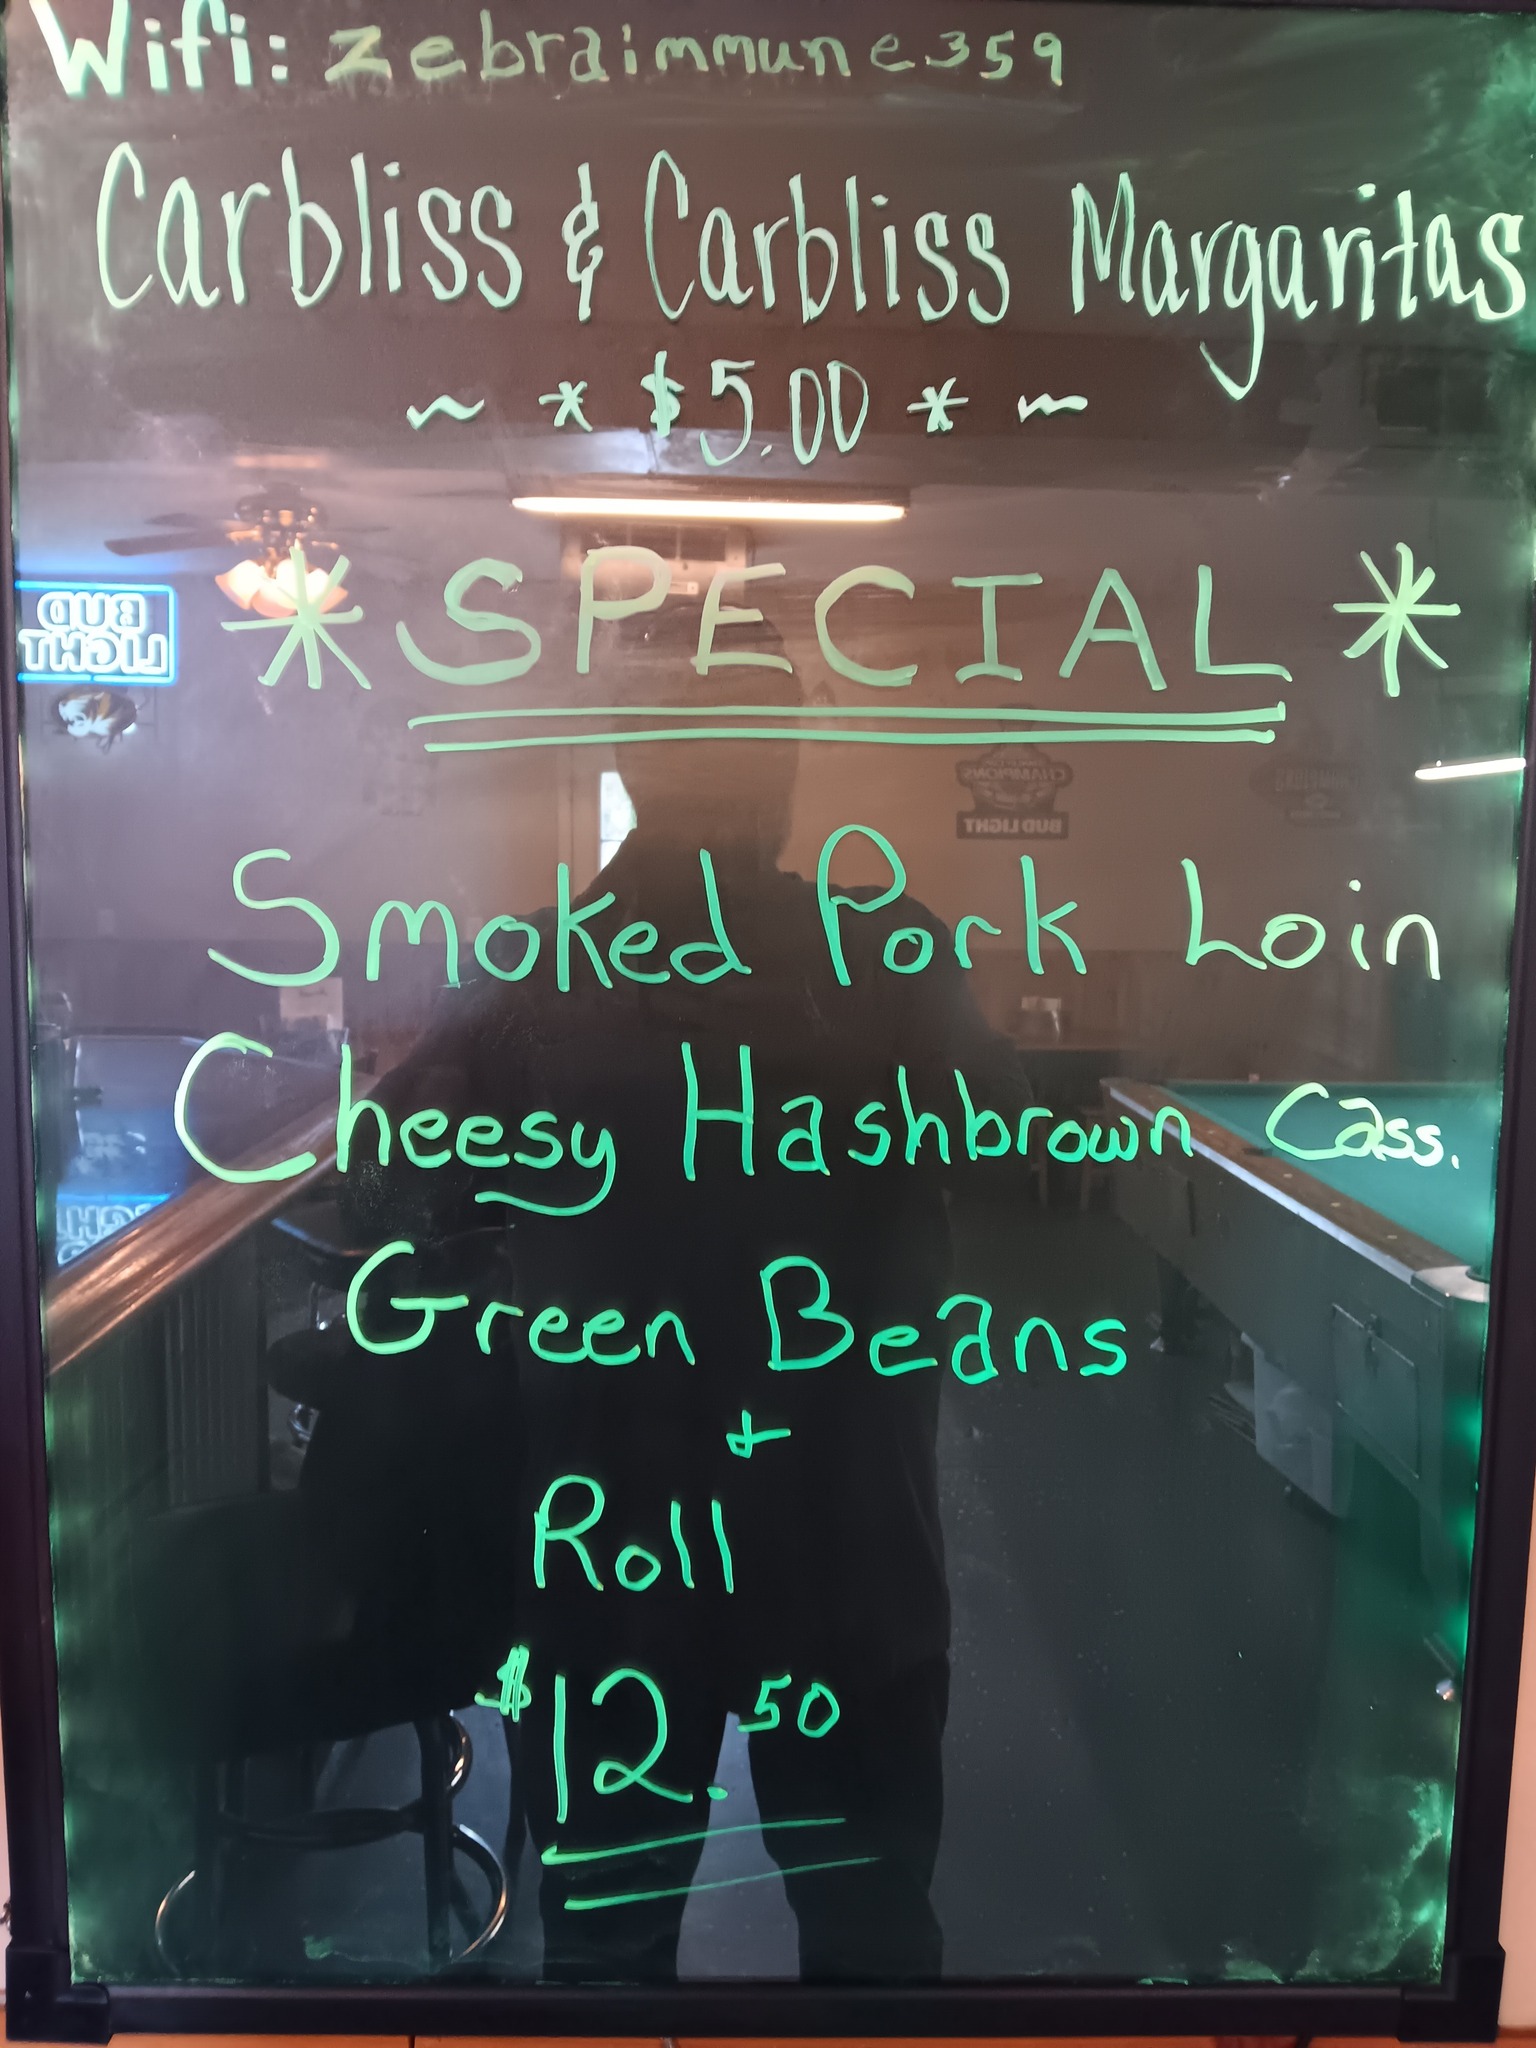 Wifi: zebraimmune359
Carbliss & Carbliss Margaritas
~ * $5.00 * ~
* SPECIAL *
BUD
LIGHT
CHAMPIONS
BUD LIGHT
Smoked Pork Loin
Cheesy Hashbrown Cass.
Green Beans
+
Roll
$12.50